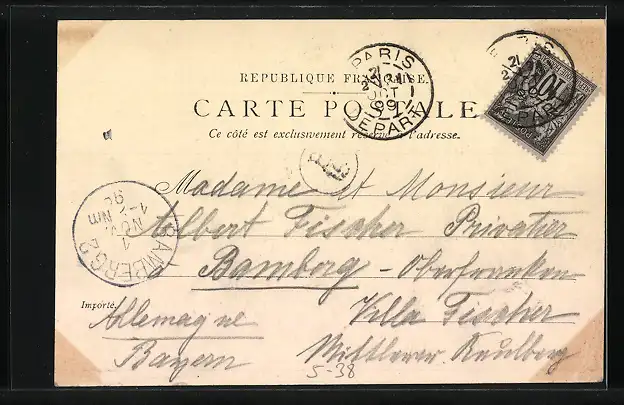 REPUBLIQUE FRANÇAISE.
CARTE POSTALE
Ce côté est exclusivement réservé à l'adresse.
PARIS
OCT
99
DEPART
BAMBERG
1
NOV.
1-2 Nm
Madame et Monsieur
Albert Fischer Privatier
Bamberg - Oberfranken
Importé.
Villa Fischer
Allemagne
Bayern
Mittlerer Kaulberg
5-38